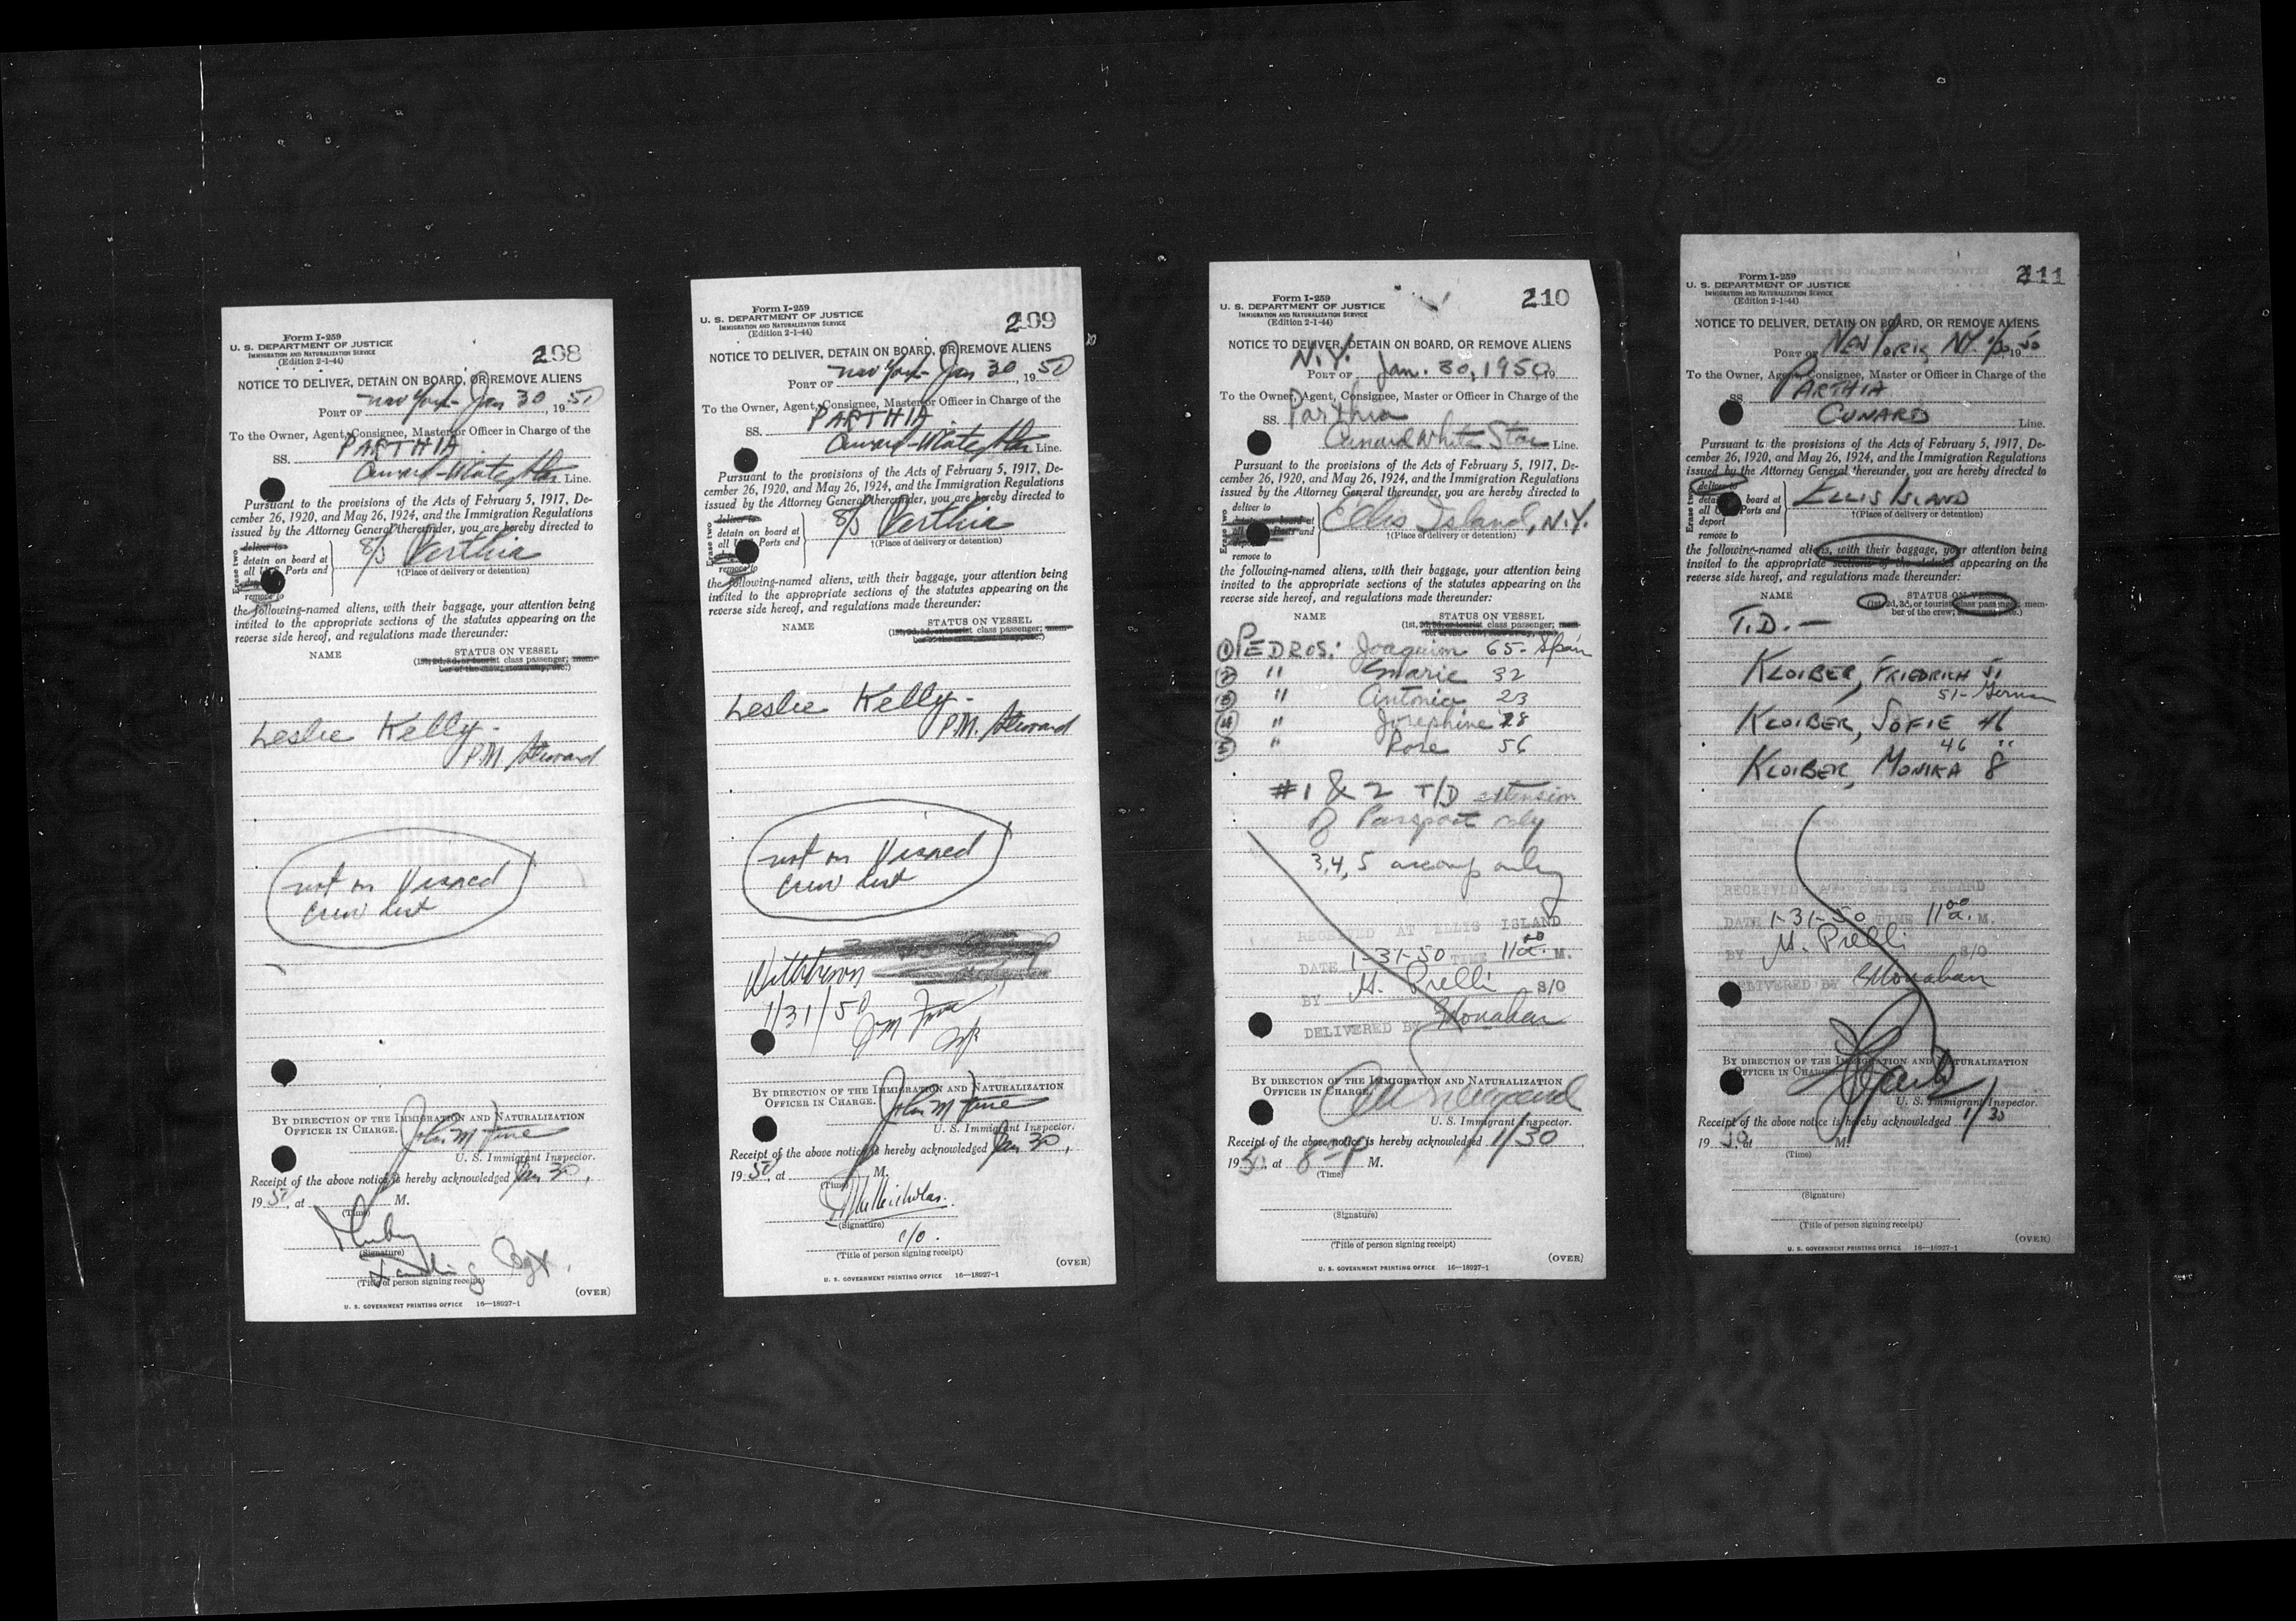 Form I-259
U. S. DEPARTMENT OF JUSTICE
IMMIGRATION AND NATURALIZATION SERVICE
(Edition 2-1-44)
208
NOTICE TO DELIVER, DETAIN ON BOARD, OR REMOVE ALIENS
PORT OF New York Jan 30, 1950
To the Owner, Agent, Consignee, Master or Officer in Charge of the
SS. PARTHIA
Cunard-White Star Line.
Pursuant to the provisions of the Acts of February 5, 1917, De-
cember 26, 1920, and May 26, 1924, and the Immigration Regulations
issued by the Attorney General thereunder, you are hereby directed to
Erase two
deliver to
detain on board at
all Ports and
remove to
S/S Parthia
†(Place of delivery or detention)
the following-named aliens, with their baggage, your attention being
invited to the appropriate sections of the statutes appearing on the
reverse side hereof, and regulations made thereunder:
NAME STATUS ON VESSEL
(1st, 2d, 3d, or tourist class passenger; mem-
ber of the crew, stowaway, etc.)
Leslie Kelly -
P.M. Steward
not on Visaed
crew list
BY DIRECTION OF THE IMMIGRATION AND NATURALIZATION
OFFICER IN CHARGE.
John M Fine
U. S. Immigrant Inspector.
Receipt of the above notice is hereby acknowledged Jan 30,
1950, at M.
(Time)
(Signature)
(Title of person signing receipt)
(OVER)
U. S. GOVERNMENT PRINTING OFFICE 16—18927-1
Form I-259
U. S. DEPARTMENT OF JUSTICE
IMMIGRATION AND NATURALIZATION SERVICE
(Edition 2-1-44)
209
NOTICE TO DELIVER, DETAIN ON BOARD, OR REMOVE ALIENS
PORT OF New York Jan 30, 1950
To the Owner, Agent, Consignee, Master or Officer in Charge of the
SS. PARTHIA
Cunard-White Star Line.
Pursuant to the provisions of the Acts of February 5, 1917, De-
cember 26, 1920, and May 26, 1924, and the Immigration Regulations
issued by the Attorney General thereunder, you are hereby directed to
Erase two
deliver to
detain on board at
all Ports and
remove to
S/S Parthia
†(Place of delivery or detention)
the following-named aliens, with their baggage, your attention being
invited to the appropriate sections of the statutes appearing on the
reverse side hereof, and regulations made thereunder:
NAME STATUS ON VESSEL
(1st, 2d, 3d, or tourist class passenger; mem-
ber of the crew, stowaway, etc.)
Leslie Kelly -
P.M. Steward
not on Visaed
crew list
Withdrawn
1/31/50
J M Fine
BY DIRECTION OF THE IMMIGRATION AND NATURALIZATION
OFFICER IN CHARGE.
John M Fine
U. S. Immigrant Inspector.
Receipt of the above notice is hereby acknowledged Jan 30,
1950, at M.
(Time)
(Signature)
c/o.
(Title of person signing receipt)
(OVER)
U. S. GOVERNMENT PRINTING OFFICE 16—18927-1
Form I-259
U. S. DEPARTMENT OF JUSTICE
IMMIGRATION AND NATURALIZATION SERVICE
(Edition 2-1-44)
210
NOTICE TO DELIVER, DETAIN ON BOARD, OR REMOVE ALIENS
N.Y.
PORT OF Jan. 30, 1950 19
To the Owner, Agent, Consignee, Master or Officer in Charge of the
SS. Parthia
Cunard White Star Line.
Pursuant to the provisions of the Acts of February 5, 1917, De-
cember 26, 1920, and May 26, 1924, and the Immigration Regulations
issued by the Attorney General thereunder, you are hereby directed to
deliver to
remove to
Ellis Island, N.Y.
†(Place of delivery or detention)
the following-named aliens, with their baggage, your attention being
invited to the appropriate sections of the statutes appearing on the
reverse side hereof, and regulations made thereunder:
NAME STATUS ON VESSEL
(1st, 2d, 3d, or tourist class passenger; mem-
① PEDROS: Joaquim 65 - Spain
② " Marie 32
③ " Antonia 23
④ " Josephine 28
⑤ " Rose 56
#1 & 2 T/D extension
of Passport only
3, 4, 5 accomp only
RECEIVED AT ELLIS ISLAND
DATE 1-31-50 TIME 11 00 a. M.
BY M. Prelli S/O
DELIVERED BY Monahan
BY DIRECTION OF THE IMMIGRATION AND NATURALIZATION
OFFICER IN CHARGE.
U. S. Immigrant Inspector.
Receipt of the above notice is hereby acknowledged 1/30
1950, at 8 P M.
(Time)
(Signature)
(Title of person signing receipt)
(OVER)
U. S. GOVERNMENT PRINTING OFFICE 16—18927-1
Form I-259
U. S. DEPARTMENT OF JUSTICE
IMMIGRATION AND NATURALIZATION SERVICE
(Edition 2-1-44)
211
NOTICE TO DELIVER, DETAIN ON BOARD, OR REMOVE ALIENS
PORT OF NEW YORK NY 1/30 1950
To the Owner, Agent, Consignee, Master or Officer in Charge of the
SS. PARTHIA
CUNARD Line.
Pursuant to the provisions of the Acts of February 5, 1917, De-
cember 26, 1920, and May 26, 1924, and the Immigration Regulations
issued by the Attorney General thereunder, you are hereby directed to
Erase two
deliver to
board at
all Ports and
deport
remove to
ELLIS ISLAND
†(Place of delivery or detention)
the following-named aliens, with their baggage, your attention being
invited to the appropriate sections of the statutes appearing on the
reverse side hereof, and regulations made thereunder:
NAME STATUS ON VESSEL
(1st, 2d, 3d, or tourist class passenger; mem-
ber of the crew,
T.D. —
KLOIBER, FRIEDRICH 51
51 - German
KLOIBER, SOFIE 46
46 "
KLOIBER, MONIKA 8
RECEIVED AT ELLIS ISLAND
DATE 1-31-50 TIME 11 00 a. M.
BY M. Prelli S/O
DELIVERED BY Monahan
BY DIRECTION OF THE IMMIGRATION AND NATURALIZATION
OFFICER IN CHARGE.
U. S. Immigrant Inspector.
Receipt of the above notice is hereby acknowledged 1/30
1950 at M.
(Time)
(Signature)
(Title of person signing receipt)
(OVER)
U. S. GOVERNMENT PRINTING OFFICE 16—18927-1